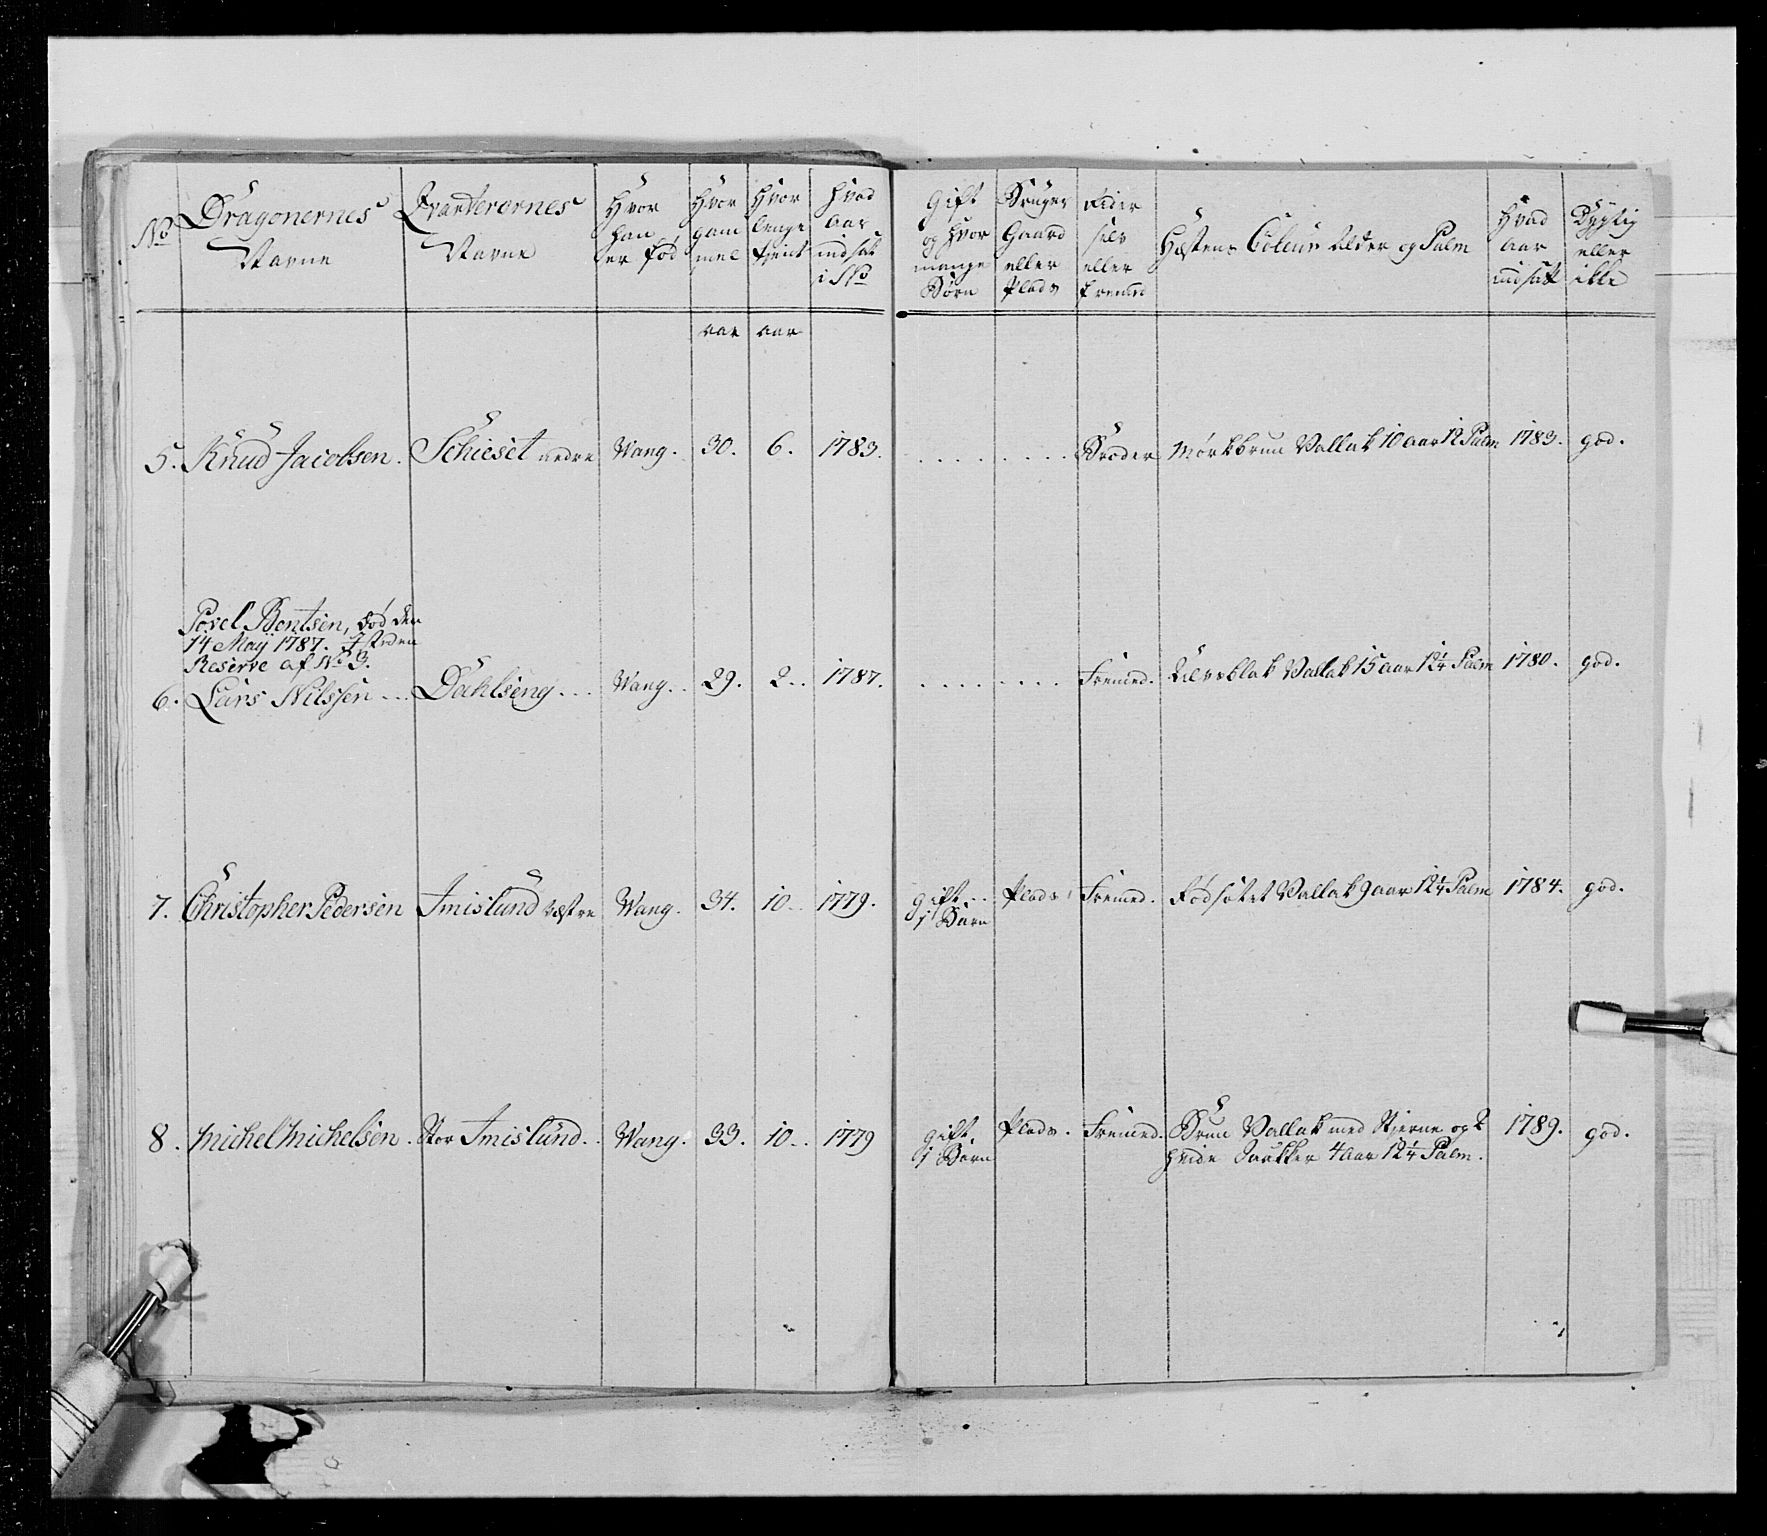 No
Dragonernes Navne
Qvarterernes Navne
Hvor han er fød
Hvor gammel
Hvor længe tient
Hvad Aar indsat i No
Gift og Hvor mange Børn
Bruger Gaard eller Plads
Rider selv eller fremed
Hæstens Coleur Alder og Palm
Hvad aar indsatt
Dygtig eller ikke
aar aar
5. Knud Jacobsen. Schieset nedre Wang. 30. 6. 1783. Broder Mørkbrun Vallak 10 aar 12 Palm 1783. god.
Povel Bentsen, død den
14 May 1787. I steden
Reserve af No 3.
6. Lars Nilssen Dahlseng Wang. 29. 2 1787. Fremed. Ulvsblak Vallak 15 aar 12 1/4 Palm 1780. god.
7. Christopher Pedersen Imislund vestre Wang. 34. 10 1779. gift Plads Fremed. Rødsidet Vallak 9 aar 12 1/4 Palm 1784. god.
1 Barn
8. Michel Michelsen. Stor Imislund Wang. 33. 10 1779 gift. Plads. Fremed. Brun Vallak med Stierne og 2 1789. god.
1 Barn hvide Sokker 4 aar 12 1/4 Palm.